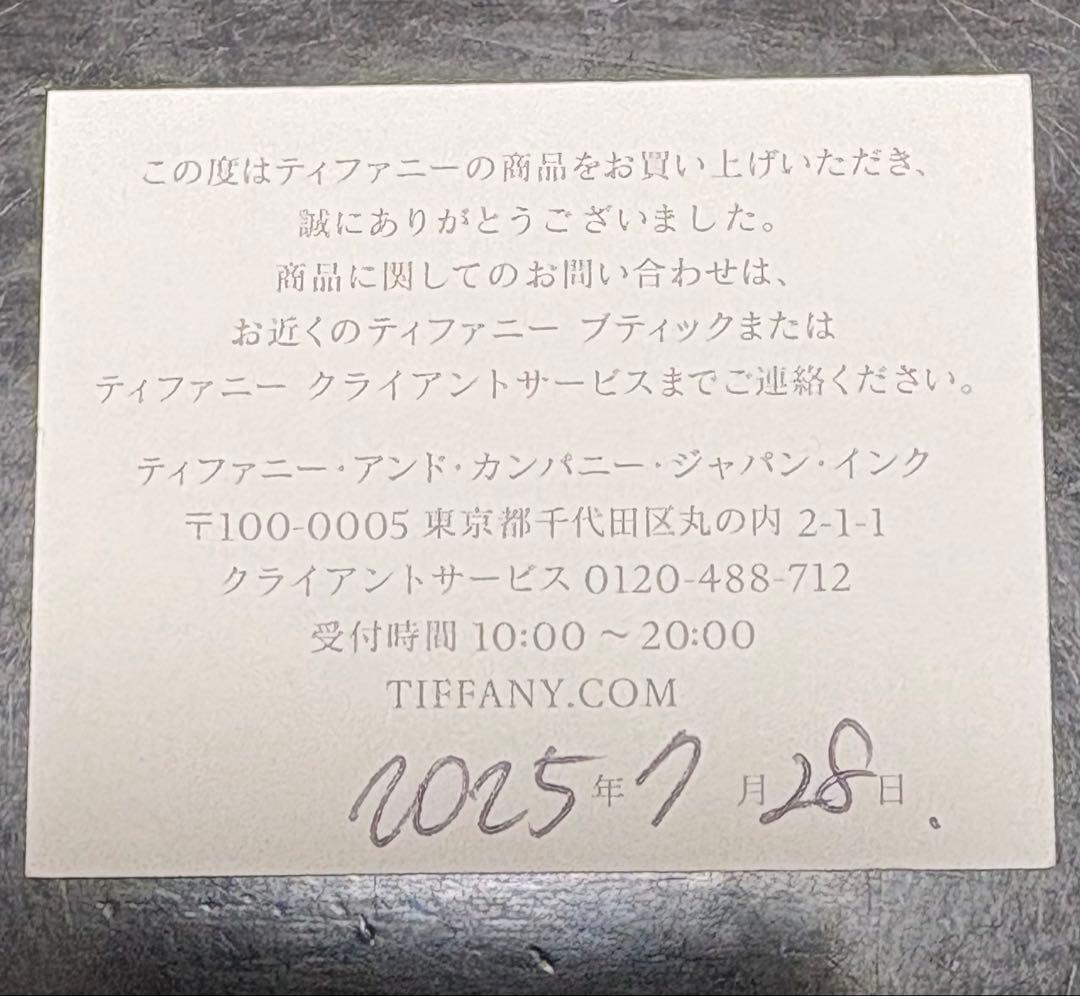 この度はティファニーの商品をお買い上げいただき、
誠にありがとうございました。
商品に関してのお問い合わせは、
お近くのティファニー ブティックまたは
ティファニー クライアントサービスまでご連絡ください。
ティファニー・アンド・カンパニー・ジャパン・インク
〒100-0005 東京都千代田区丸の内 2-1-1
クライアントサービス 0120-488-712
受付時間 10:00 ~ 20:00
TIFFANY.COM
2025年7月28日.